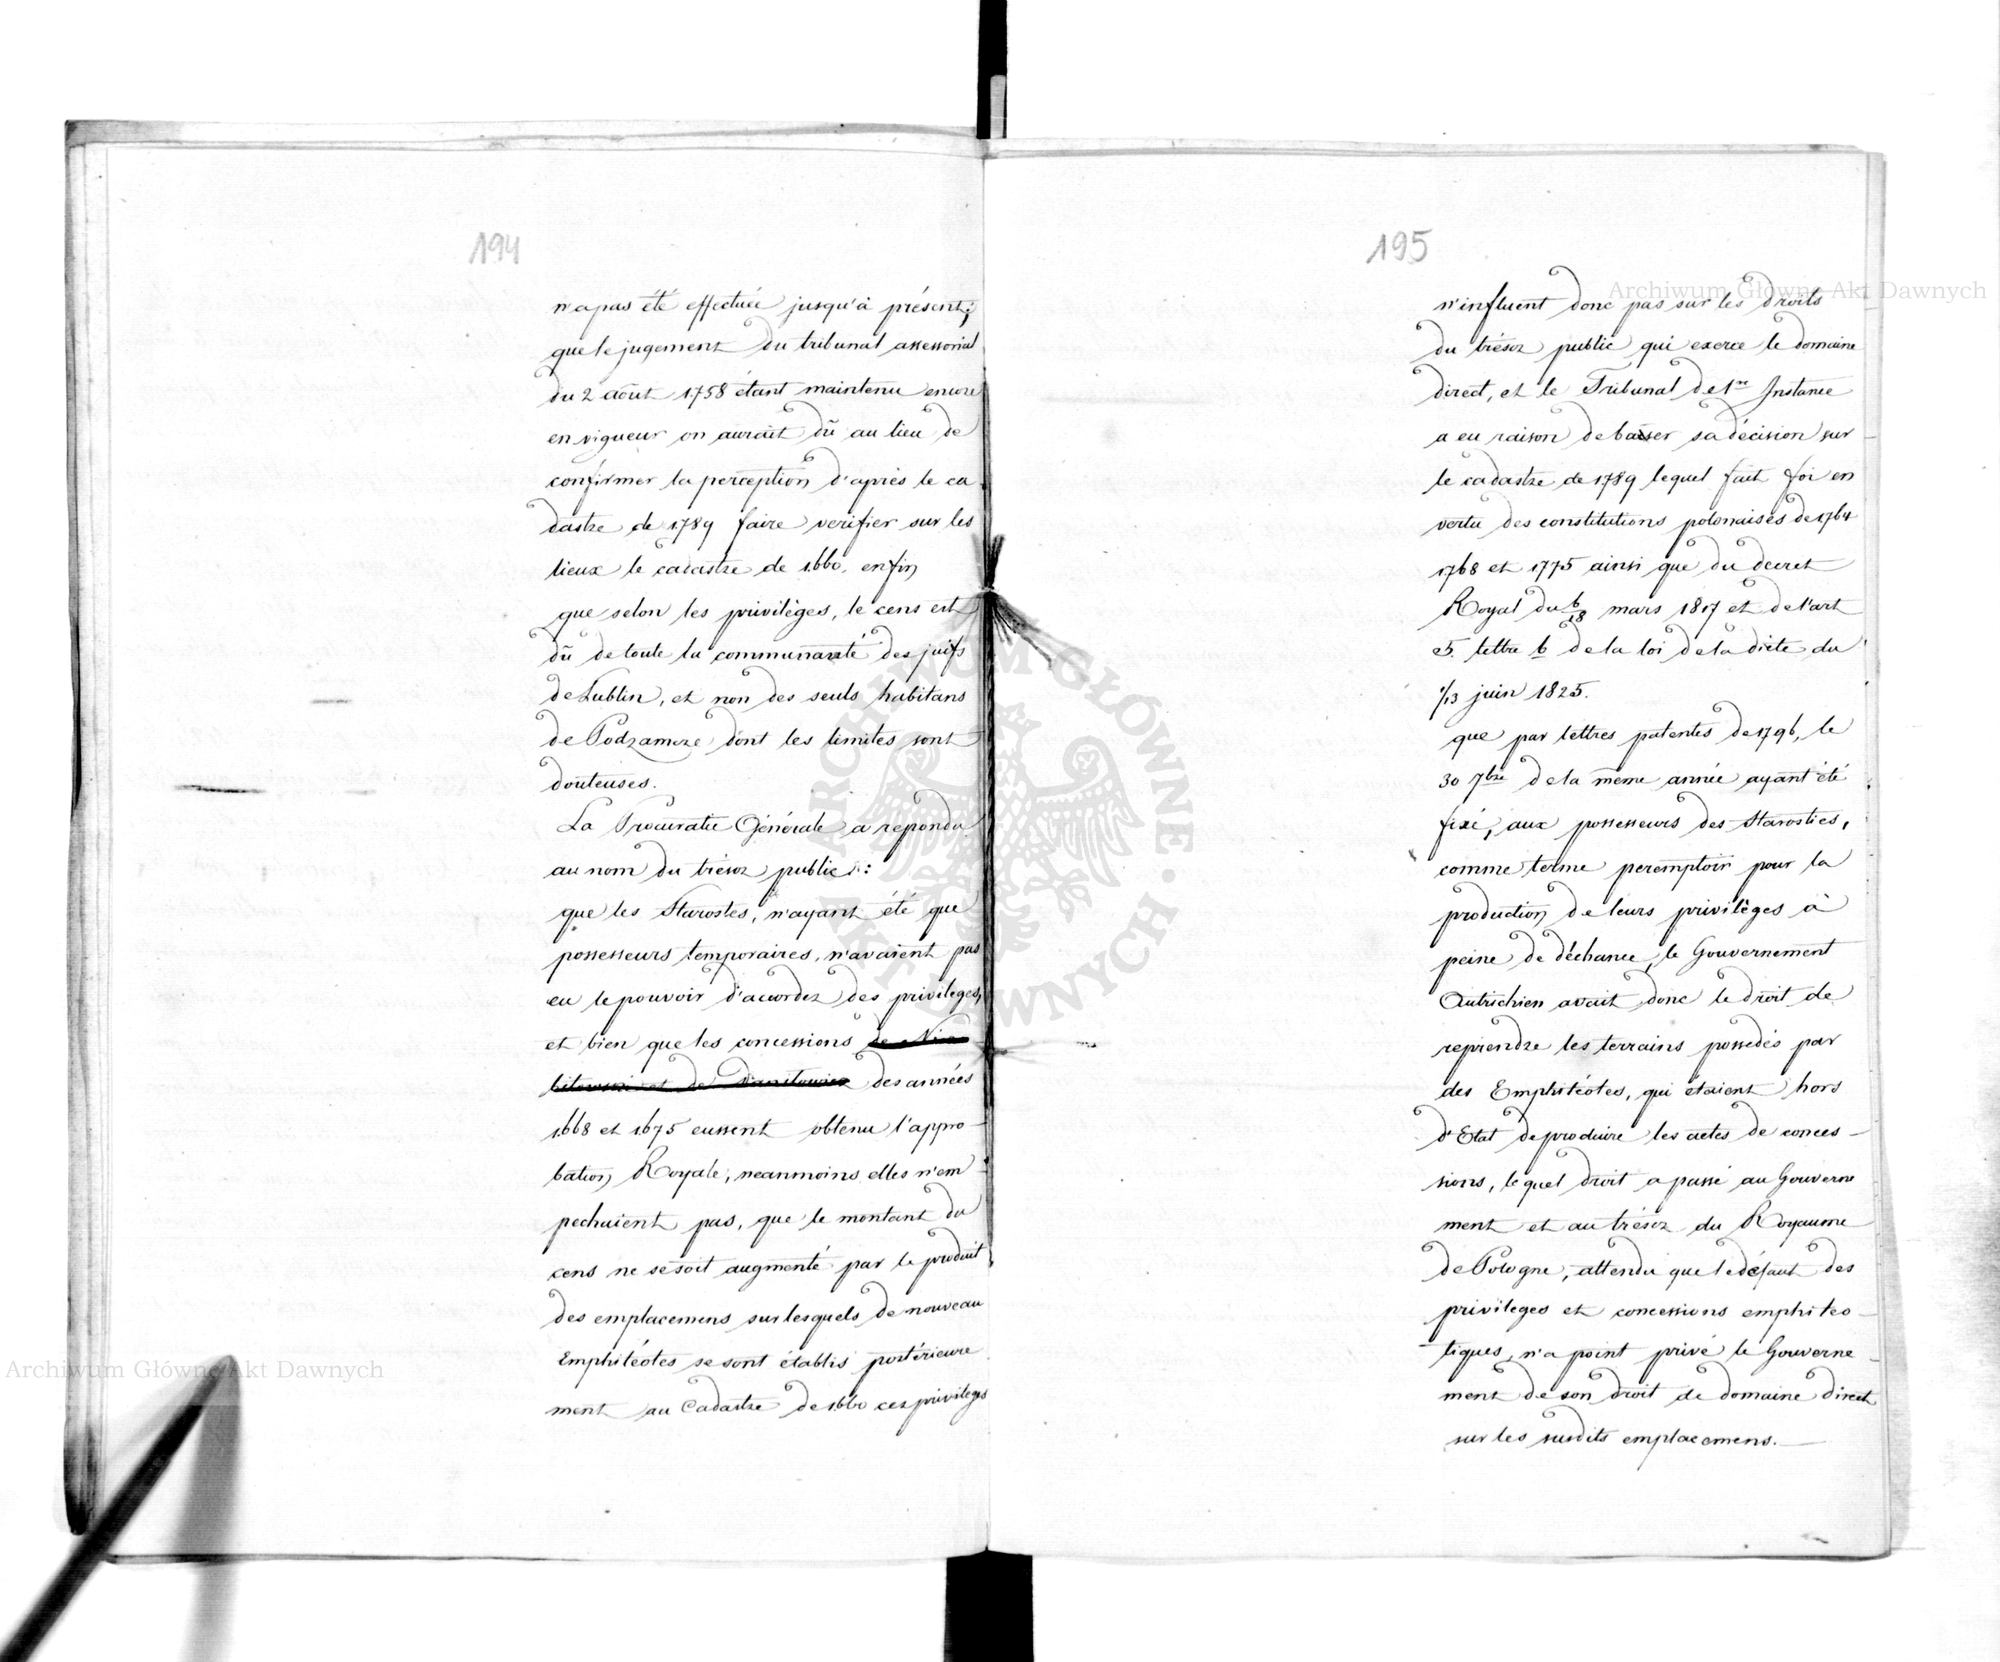 194
n'a pas été effectuée jusqu'à présent;
que le jugement du tribunal assessorial
du 2 août 1758 étant maintenu encore
en vigueur on aurait dû au lieu de
confirmer la perception d'après le ca
dastre de 1789 faire verifier sur les
lieux le cadastre de 1660. enfin
que selon les privilèges, le cens est
dû de toute la communauté des juifs
de Lublin, et non des seuls habitans
de Podzamcze dont les limites sont
douteuses.
La Procuratie Générale a repondu
au nom du trésor public :
que les Starostes, n'ayant été que
possesseurs temporaires, n'avaient pas
eu le pouvoir d'accorder des privileges,
et bien que les concessions
des années
1668 et 1675 eussent obtenu l'appro-
bation Royale, neanmoins elles n'em
pechaient pas, que le montant du
cens ne se soit augmenté par le produit
des emplacemens sur lesquels de nouveau
Emphitéotes se sont établis postérieure
ment au Cadastre de 1660 ces privileges
195
n'influent donc pas sur les droits
du trésor public qui exerce le domaine
direct, et le Tribunal de 1re Instance
a eu raison de baser sa décision sur
le cadastre de 1789 lequel fait foi en
vertu des constitutions polonaises de 1764
1768 et 1775 ainsi que du decret
Royal du 6/18 mars 1817 et de l'art
5. lettre b de la loi de la diète du
1/13 juin 1825.
que par lettres patentes de 1796, le
30 7bre de la même année ayant été
fixé, aux possesseurs des Starosties,
comme terme peremptoir pour la
production de leurs privilèges à
peine de déchance, le Gouvernement
Autrichien avait donc le droit de
reprendre les terrains possedés par
des Emphitéotes, qui étaient hors
d'Etat de produire les actes de conces-
sions, lequel droit a passé au Gouverne
ment et au trésor du Royaume
de Pologne, attendu que le défaut des
privileges et concessions emphiteo-
tiques, n'a point privé le Gouverne-
ment de son droit de domaine direct
sur les susdits emplacemens.
Archiwum Główne Akt Dawnych
Archiwum Główne Akt Dawnych
ARCHIWUM GŁÓWNE · AKT DAWNYCH ·